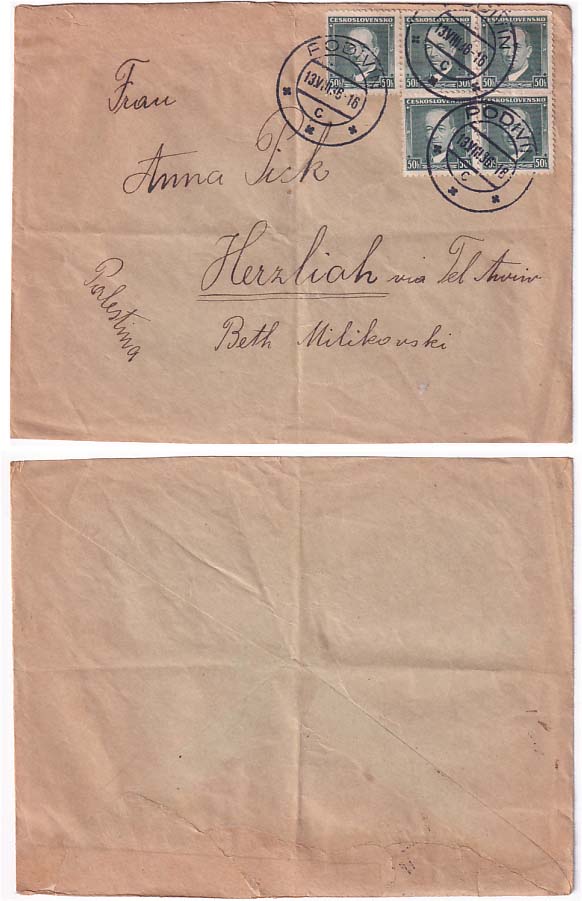 ČESKOSLOVENSKO ČESKOSLOVENSKO ČESKOSLOVENSKO
50h 50h
PODIVÍN
13.VIII.36-16
C
PODIVÍN
13.VIII.36-16
C
ČESKOSLOVENSKO ČESKOSLOVENSKO
50h 50h
PODIVÍN
13.VIII.36-16
C
Frau
Anna Pick
Herzliah via Tel Awiw
Beth Milikovski
Palestina